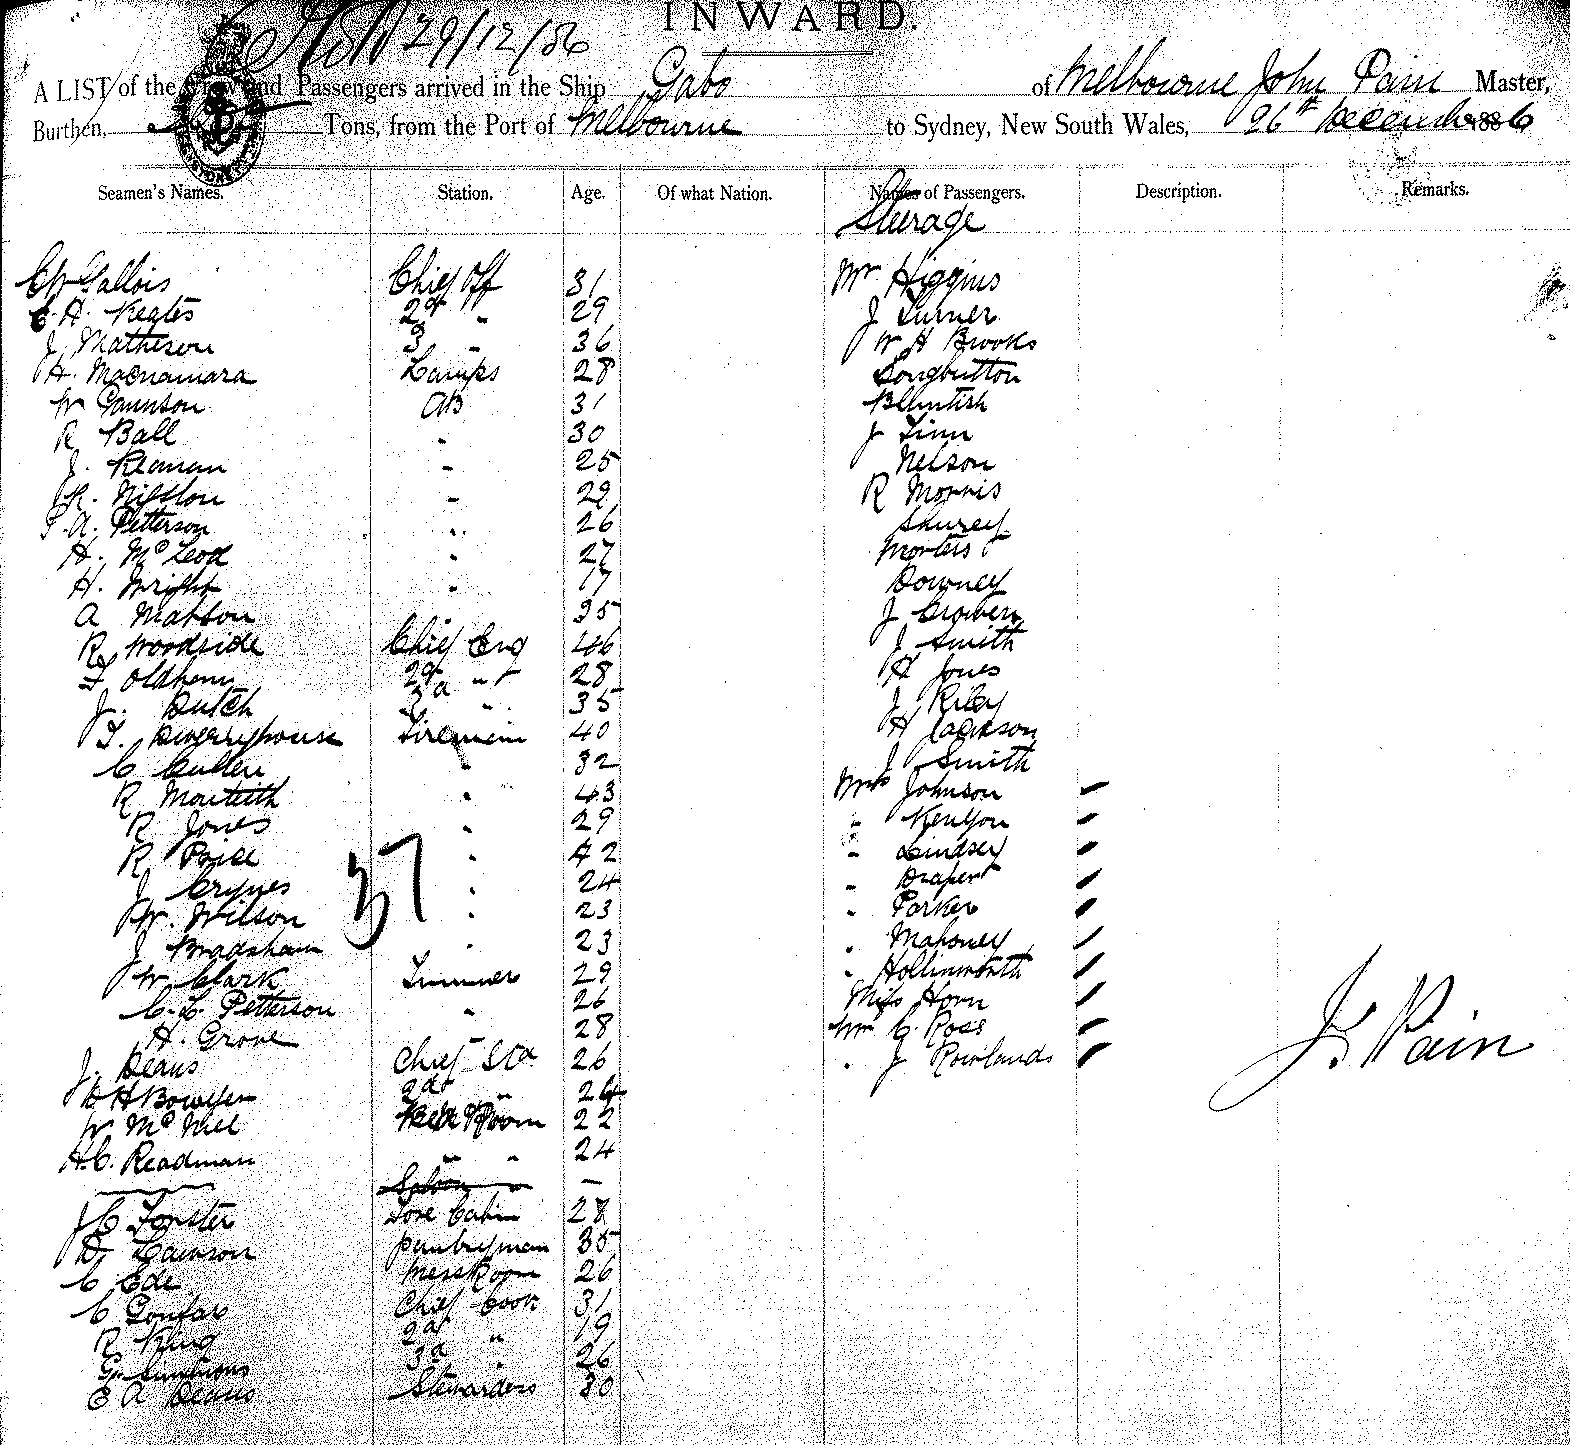 INWARD.
29/12/86
A LIST of the Crew and Passengers arrived in the Ship Gabo of Melbourne John Pain Master,
Burthen, Tons, from the Port of Melbourne to Sydney, New South Wales, 26th December 1886
Seamen's Names. Station. Age. Of what Nation. Names of Passengers. Description. Remarks.
Steerage
C W Gallois Chief Off 31 Mr Higgins
C. H. Keates 2d " 29 J Turner
J. Matheson 3 " 36 W H Brooks
H. Macnamara Lamps 28 Longbutton
W Gaunson AB 31
R Ball " 30 J Finn
J. Keanan " 25 Nelson
" 29 R Morris
P. A. Petterson " 26
H. McLeod " 27 Morters
H. Wright " 17 Downey
A Matson 35 J
R Woodside Chief Eng 46 J Smith
F Oldham 2d " 28 H Jones
J. Dutch 3d " 35 J Riley
T. Fireman 40 H Jackson
C Cullen " 32 J Smith
R Monteith " 43 Mrs Johnson
R Jones " 29 " Kenyon
R Price " 42 " Lindsey
J Crynes " 24 " Draper
W. Wilson " 23 " Parker
37
J Bradshaw " 23 " Mahoney
W Clark Trimmer 29 " Hollinworth
C. L. Petterson " 26 Miss Horn
H. Grove 28 Mr C. Ross
J. Deans Chief Std 26 " J Rowlands
J. Pain
D H Bowyer 2d " 24
W McNeil Room 22
H. C. Readman " " 24
Saloon " -
J C Forster Fore Cabin 28
D Lawson Pantryman 35
C Ede Messroom 26
C Chief Cook 31
R King 2d " 19
G. Simmons 3d " 26
E A Deans Stewardess 30